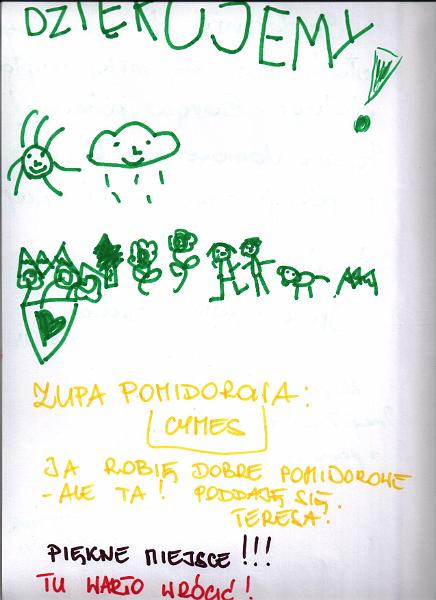 DZIĘKUJEMY!
ZUPA POMIDOROWA:
CYMES
JA ROBIĘ DOBRE POMIDOROWE
- ALE TA! PODDAJĘ SIĘ.
TERESA.
PIĘKNE MIEJSCE!!!
TU WARTO WRÓCIĆ!